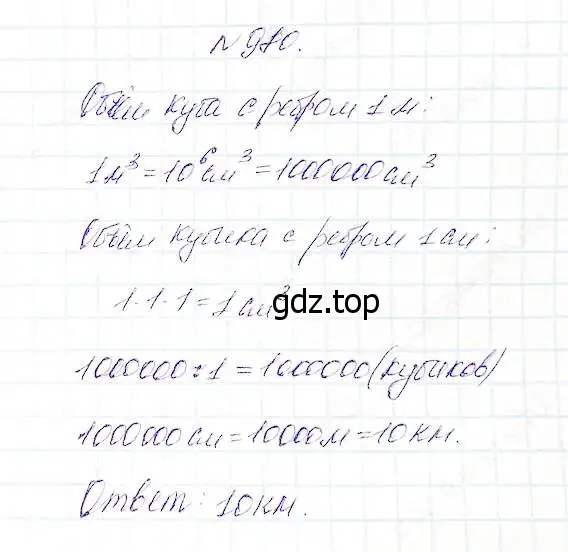 № 970.
Объём куба с ребром 1 м:
1м³ = 10⁶ см³ = 1000000 см³
Объём кубика с ребром 1 см:
1·1·1 = 1 см³
gdz.top
1000000 : 1 = 1000000 (кубиков)
1000000 см = 10000 м = 10 км.
Ответ: 10 км.